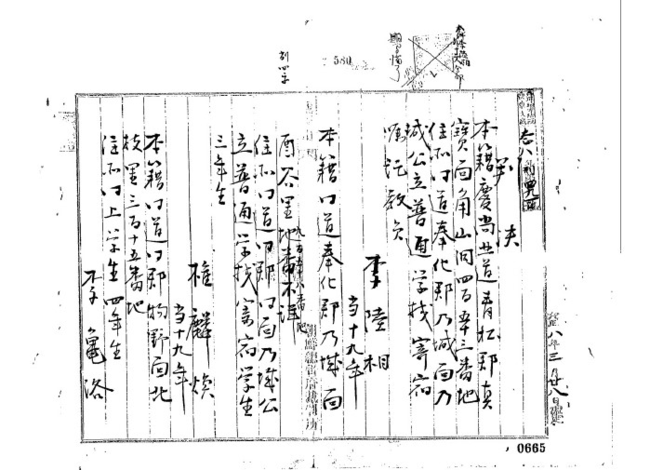 580
判決
本籍慶尚北道青松郡真
寶面角山洞四百五十三番地
住所同道奉化郡乃城面乃
城公立普通学校寄宿
嘱託教員
李陸相
当十九年
本籍同道奉化郡乃城面
酉谷里地番不詳
住所同道同郡同面乃城公
立普通学校寄宿学生
三年生
権麟煥
当十九年
本籍同道同郡物野面北
枝里三百十五番地
住所同上学生四年生
李亀洛
八年三月廿八日確定
0665